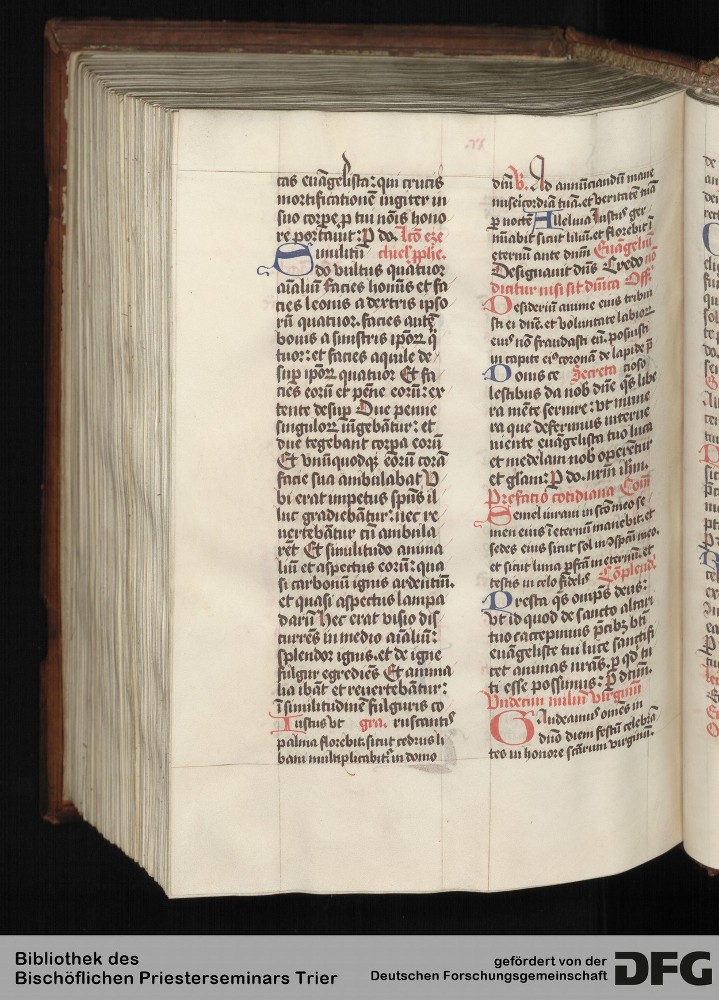 cas euāgelista: qui crucis
mortificationē iugiter in
suo corpe p tui nōis hono
re portauit: P do. Lcō eze
Similitu chiel' pphe.
do vultus quatuor
aīaliū facies hominis et fa
cies leonis a dextris ipso
rū quatuor. facies autē
bouis a sinistris ipoꝝ q̄
tuor: et facies aquile de
sup ipoꝝ quatuor Et fa
cies eorū et pēne eorū: ex
tente desup Due penne
singuloꝝ iūgebātur: et
due tegebant corpa eorū
Et vnūquodqꝫ eorū corā
facie sua ambulabat V
bi erat impetus spūs il
luc gradiebātur: nec re
uertebātur cū ambula
rēt Et similitudo anima
liū et aspectus eorū: qua
si carbonū ignis ardentiū.
et quasi aspectus lampa
darū Hec erat visio dis
currēs in medio aīaliū:
splendor ignis. et de igne
fulgur egrediēs Et anima
lia ibāt et reuertebātur:
ī similitudinē fulguris co
Iustus vt gra. ruscantis
palma florebit. sicut cedrus li
bani multiplicabitᷣ in domo
xx
dūi V. Ad annūciandū mane
misericordiā tuā. et veritatē tuā
p noctē Alleluia Iustus ger
minabit sicut liliū. et florebit ī
eternū ante dūm Euāgeliū
Designauit dūs Credo nō
dicitur nisi sit dūica Off.
Desideriū anime eius tribui
sti ei dūe. et voluntate labioꝝ
eius nō fraudasti eū. posuisti
in capite eiꝰ coronā de lapide p̄
Donis ce Secreta cioso
lestibus da nob dūe qs libe
ra mēte seruire: vt mune
ra que deferimus interue
niente euāgelista tuo luca
et medelam nob operētur
et gliam: P do. nrm ihm.
Prefatio cotidiana Com̄
Semel iuraui in scō meo se
men eius ī eternū manebit. et
sedes eius sicut sol in ꝯspcū meo.
et sicut luna pfcā in eternū. et
testis in celo fidelis Cōplend.
Presta qs omps deus:
vt id quod de sancto altari
tuo accepimus pcibꝫ bti
euāgeliste tui luce sanctifi
cet animas nrās. p qd tu
ti esse possimus: P dnm.
Vndecim miliū virginū
Gaudeamus omēs in
dūo diem festū celebrā
tes in honore scārum virginū.
Bibliothek des
Bischöflichen Priesterseminars Trier
gefördert von der
Deutschen Forschungsgemeinschaft
DFG